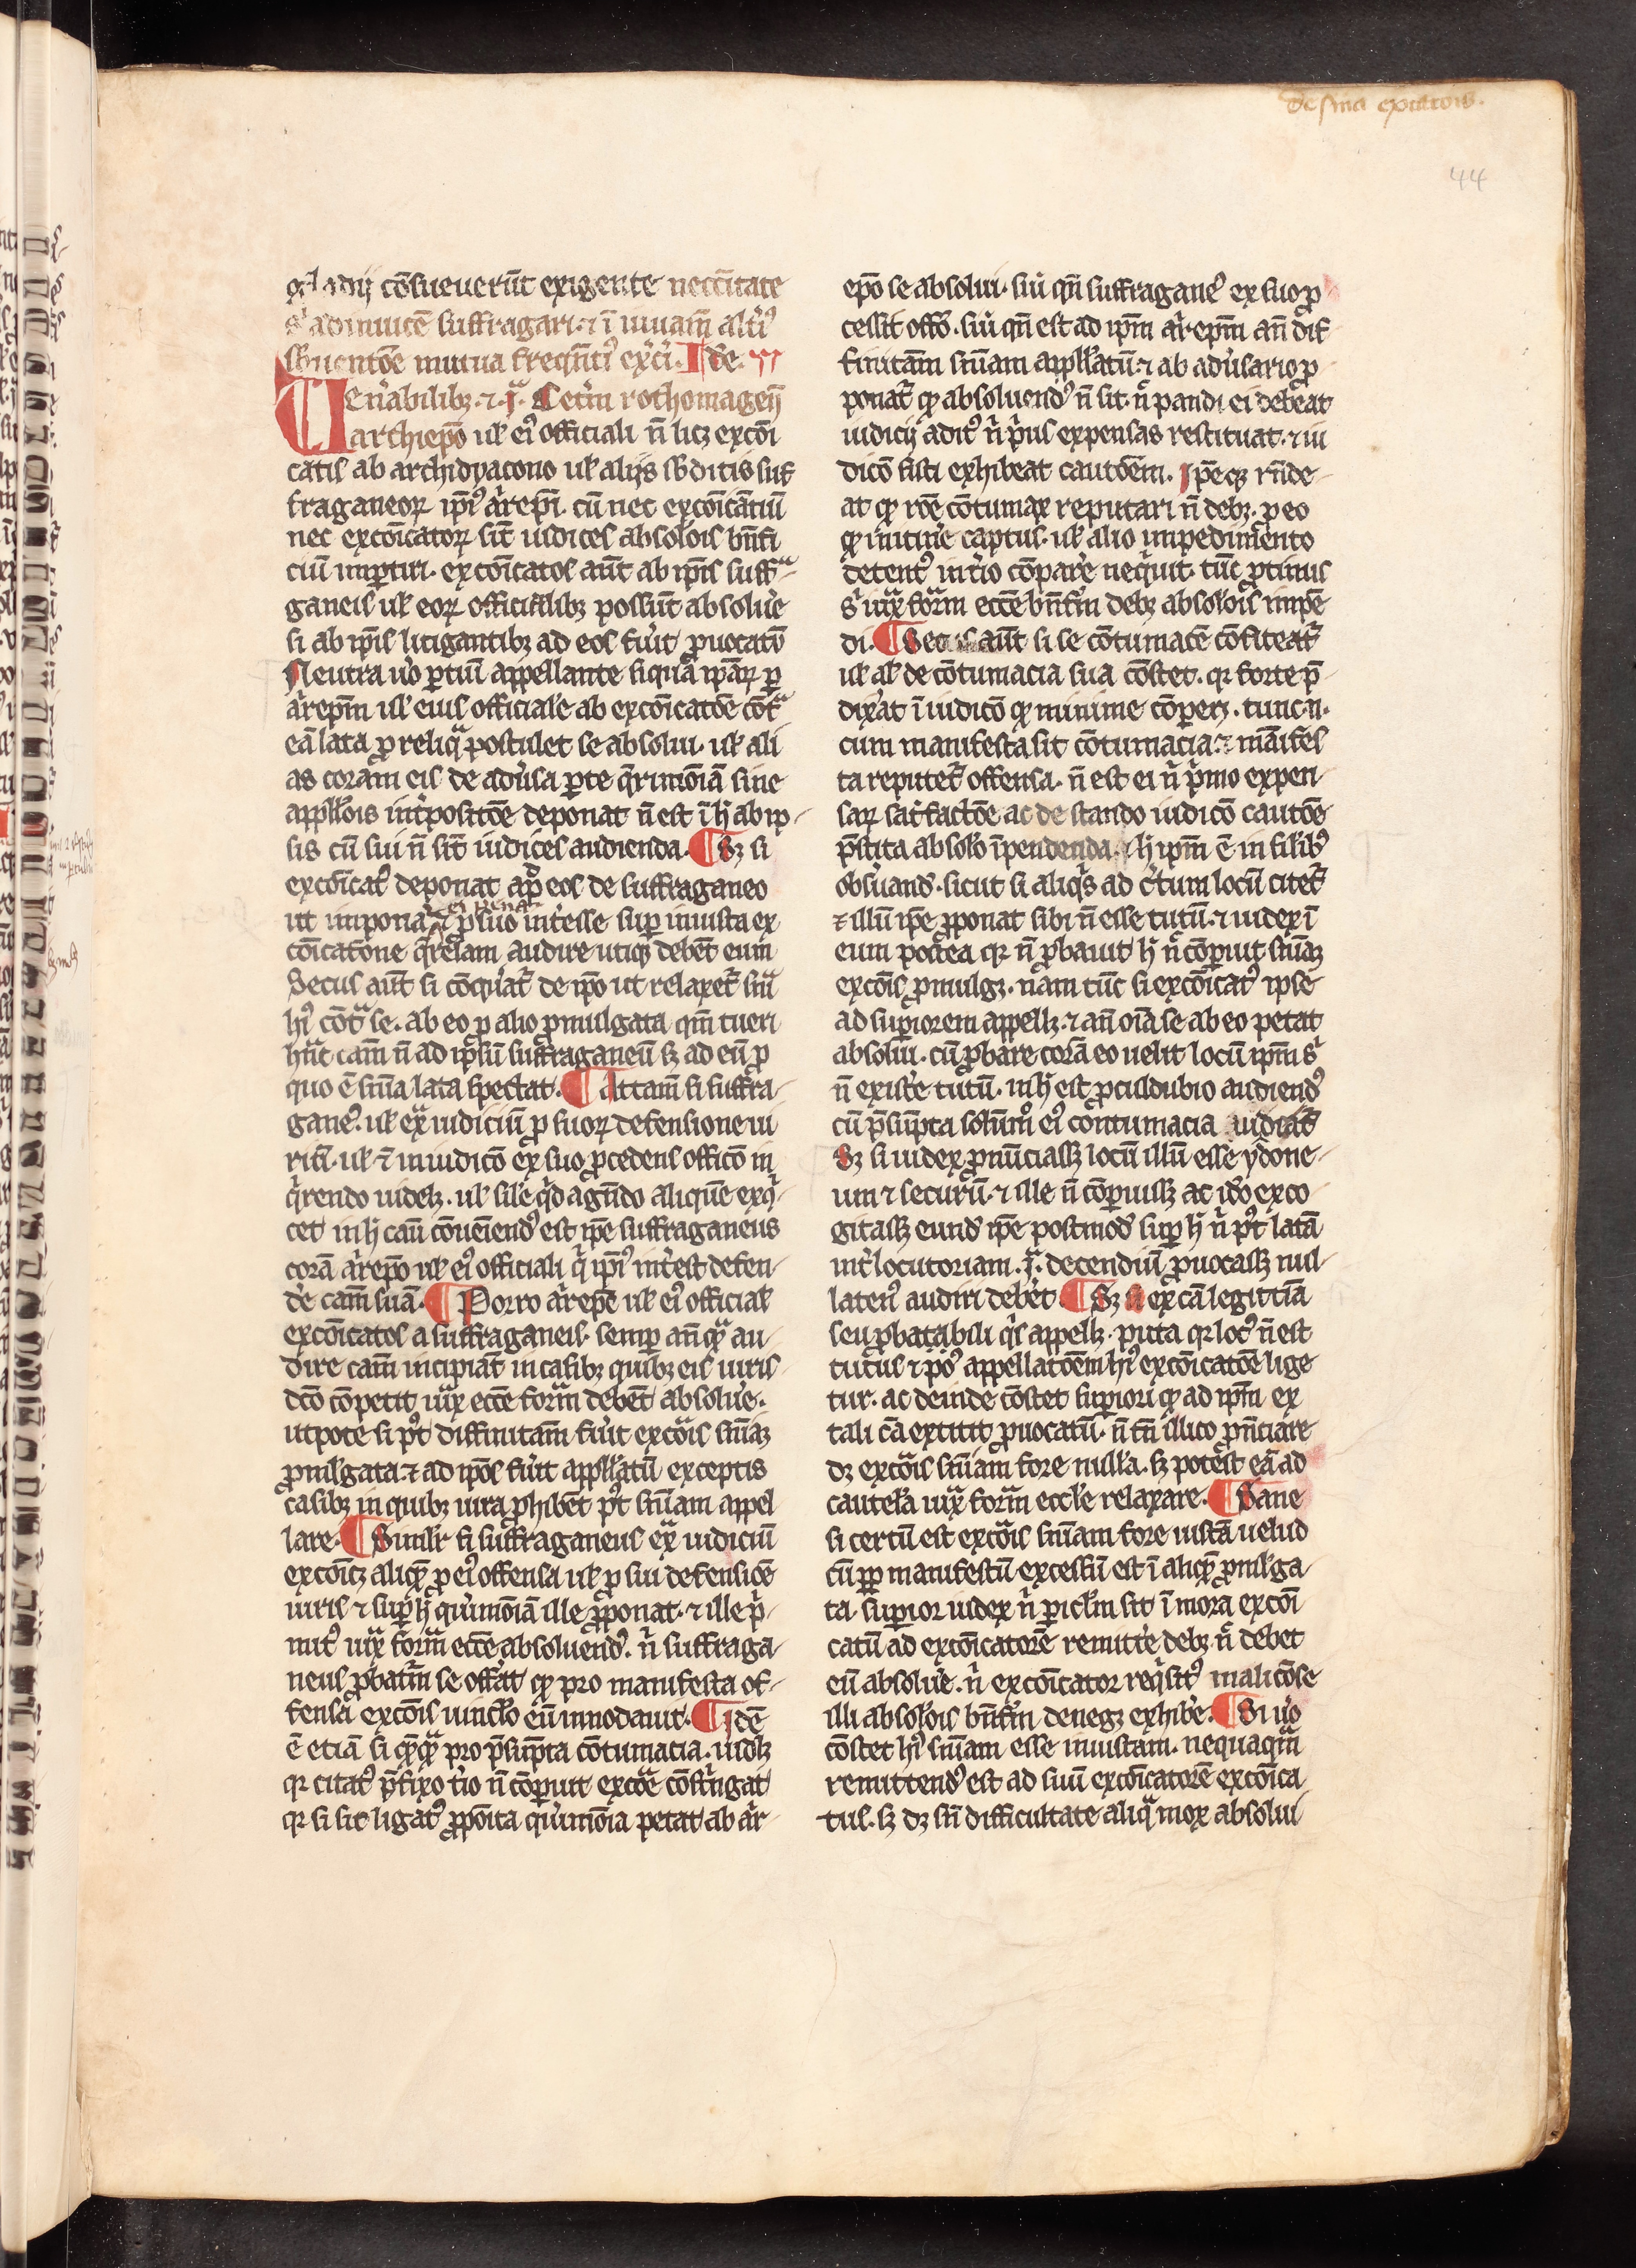 de sn̄ia exc̄atōis.
44
gladij cōsueuerūt exigente necc̄itate
s᷑ adinuicē suffragari ⁊ ī iuuam̄ alt̓i᷒
sb̄uentōe mutua freqn̄t᷒ exc̓i. Ide.
Uen̓abilibꝫ ⁊ .j̄. Cet̓m rothomageñ
archiep̄o ul̓ ei᷒ officiali n̄ licꝫ excōi
catis ab archidyacono ul̓ alijs sb̄ditis suf
fraganeoꝝ ip̄i᷒ ar̓ep̄i. cū nec excōicātiū
nec excōicatoꝝ sīt iudices absolōis bn̄fi
ciū imꝑtiri. excōicatos aūt ab ip̄is suffᵃ
ganeis ul̓ eoꝝ officialibꝫ possūt absolu̓e
si ab ip̄is litigantibꝫ ad eos fu̓it ꝓuocatū
Neutra u̓o ꝑtiū appellante siquā ip̄aꝝ ꝑ
ar̓ep̄m ul̓ eius officiale ab excōicatōe cōtᵃ
eā lata ꝓ reliqᵃ postulet se absolui. ul̓ ali
as coram eis de adu̓sa ꝑte q̓rimōiā sine
appl̓lōis int̓positōe deponat n̄ est ī h̄ ab ip
sis cū sui n̄ sīt iudices audienda. ¶ Sꝫ si
excōicat᷒ deponat apᵈ eos de suffraganeo
ei pena
ut imponat᷑ ⁊ ꝓ suo int̓esse suꝑ iniusta ex
cōicatione q̓relam audire utiqꝫ debēt eum
Secus aūt si cōquat᷑ de ip̄o ut relaxet᷑ sn̄ia
h᷒i cōtᵃ se. ab eo ꝑ alio ꝓmulgata qm̄ tueri
hūc cam̄ n̄ ad ip̄sū suffraganeū sꝫ ad eū ꝓ
quo ē sn̄ia lata spectat. ¶ Attam̄ si suffra
gane᷒. ul̓ exᵃ iudiciū ꝓ suoꝝ defensione iu
riū. ul̓ ⁊̄ in iudicō ex suo ꝓcedens officō in
q̓rendo uidelꝫ. ul̓ sil̓e qͥd agn̄do aliquē exꝗ
cet in h̄ cau̅ cōueniend᷒ est ip̄e suffraganeus
corā ar̓ep̄o ul̓ ei᷒ officiali q̓ ip̄i᷒ int̓est defen
de cam̄ suā. ¶ Porro ar̓ep̄e ul̓ ei᷒ official̓
excōicatos a suffraganeis. semꝑ an̄qᵃ au
dire cam̄ incipiāt in casibꝫ quibꝫ eis iuris
dc̄o cōpetit iuxᵃ ecc̄e formā debēt absolu̓e.
utpote si pᵗ diffinitam̄ fu̓it excōis sn̄iaꝫ
ꝓmlgata ⁊ ad ip̄os fu̓it appl̓latū exceptis
casibꝫ in quibꝫ iura ꝓhibēt pᵗ sn̄iam appel
lare. ¶ Similr̓ si suffraganeus exᵃ iudiciū
excōicꝫ aliqᵉ ꝓ ei᷒ offensa ul̓ ꝓ sui defensiōe
iuris ⁊ suꝑ h̄ qu̓imōiā ille ꝓponat. ⁊ ille p̓
mit᷒ iuxᵃ formā ecc̄e absoluend᷒. n̓ suffraga
neus ꝓbatm̄ se offa̓t ꝙ pro manifesta of
fensa excōis uincl̓o eū innodauit. ¶ Idē
ē etiā si qͤqᵃ pro p̄sūpta cōtumacia. uidlꝫ
qꝛ citat᷒ p̄fixo t̓io n̄ cōꝑuit excōe cōstͥngat
qꝛ si sit ligat᷒ ꝓpōita qu̓imōia petat ab ar̓
ep̄o se absolui. siu̓ qn̄ suffragane᷒ ex suo ꝓ
cessit offō. siu̓ qn̄ est ad ip̄m ar̓.ep̄m an̄ dif
finitam̄ sn̄iam appl̓latū ⁊ ab adu̓sario ꝓ
ponat᷑ ꝙ absoluend᷒ n̄ sit. n̓ pandi ei debeat
iudicij adit᷒ n̓ p̓us expensas restituat. ⁊ iu
dicō sisti exhibeat cautōem. Ip̄eqꝫ rn̄de
at ꝙ rōe cōtumax reputari n̄ debꝫ. ꝑ eo
ꝙ initin̓e captus. ul̓ alio impedimēto
detent᷒ in t̓io cōpare neqᵘit. tūc ꝓtinus
s᷑ iuxᵃ formā ecc̄e bn̄fm̄ debꝫ absolōis impē
di. ¶ Secus aūt si se cōtumacē cōfiteat᷑
ul̓ al̓ de cōtumacia sua cōstet. qꝛ forte p̄
dixat ī iudicō ꝙ minime cōꝑeꝫ. tunc .n.
cum manifesta sit cōtumacia ⁊ manifes
ta reputet᷑ offensa. n̄ est ei n̓ p̓mo expen
saꝝ sat᷑factōe ac de stando iudicō cautōe
p̄stita absolō īpendenda. ⁊ h̄ ip̄m ē in silib᷒
obsuand᷒. sicut si aliqͥs ad c̓tum locū citet᷑
⁊ illū ip̄e ꝓponat sibi n̄ esse tutū. ⁊ iudex ī
eum postea qꝛ n̄ ꝓbauit h̄ n̄ cōꝑuit sn̄iaꝫ
excōis ꝓmulgꝫ. nam tūc si excōicat᷒ ipse
ad suꝑiorem appellꝫ ⁊ an̄ oīa se ab eo petat
absolui. cū ꝓbare corā eo uelit locū ip̄m s᷑
n̄ existe tutū. in h̄ est ꝓculdubio audiend᷒
cū p̄sūpta solūm̊ ei᷒ contumacia iudicat᷑
Sꝫ si iudex ꝓnūciassꝫ locū illū esse ydone
um ⁊ securū. ⁊ ille n̄ cōꝑuissꝫ ac id̓o exco
gitassꝫ eund᷒ ip̄e postmod᷒ suꝑ h̄ n̓ pᵗ latā
int̓locutoriam .j̄. decendiū ꝓuocassꝫ nul
laten᷒ audiri debe̓t. ¶ Sꝫ si ex cā legittīa
seu ꝓbatabili qͥs appellꝫ. puta qꝛ loc᷒ n̄ est
tutus ⁊ po᷒ appellatōem h᷒i excōicatōe lige
tur. ac deinde cōstet suꝑiori ꝙ ad ip̄m ex
tali cā extitit ꝓuocatū. n̄ tn̄ illico ꝓnc̄iare
dꝫ excōis sn̄iam fore nullā. sꝫ potest eā ad
cautelā iuxᵃ formā eccl̓e relaxare. ¶ Sane
si certū est excōis sn̄iam fore iustā uelud
cū ꝓpꝑ manifestū excessū est ī aliqᵉ ꝓmlga
ta. suꝑior iudex n̓ ꝑicl̓m sit ī mora excōi
catū ad excōicatorē remitte debꝫ n̓ debet
eū absolu̓e. n̓ excōicator reqͥsit᷒ maliciōse
illi absolōis bn̄fm̄ denegꝫ exhibe̓. ¶ Si u̓o
cōstet h᷒i sn̄iam esse iniustam. nequaqm̄
remittend᷒ est ad suū excōicatorē excōica
tus. sꝫ dꝫ sn̄ difficultate aliqᵃ mox absolui